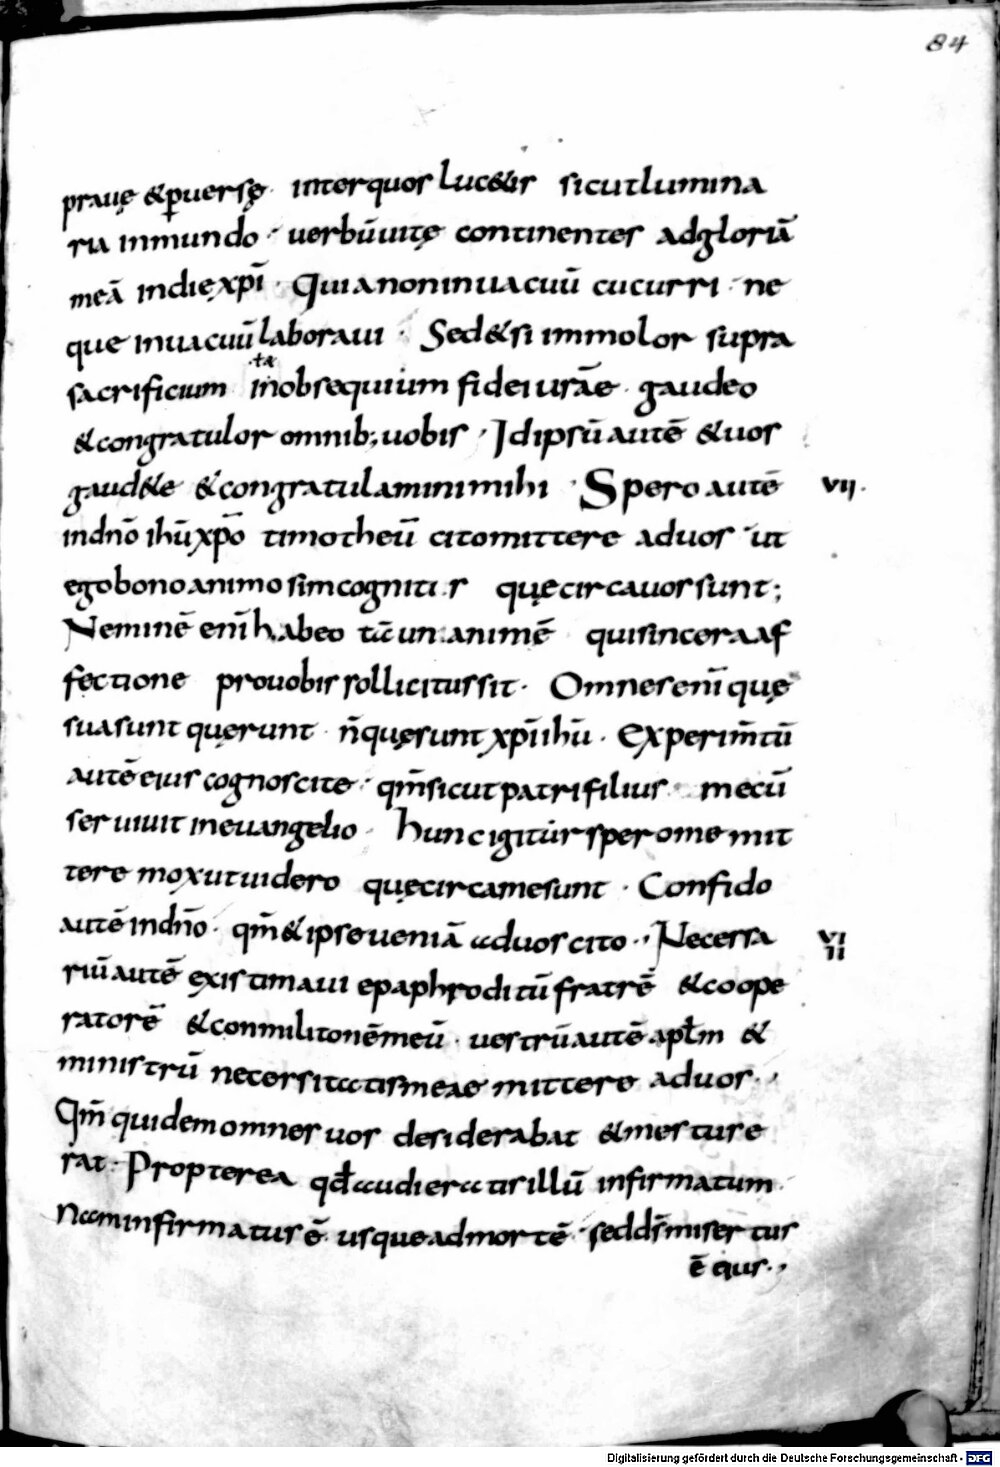 84
prauę & ꝑuersę · inter quos luc&is sicut lumina
ria in mundo · uerbū uitę continentes ad gloriā
meā in die xp̄i · Quia non in uacuū cucurri · ne
que in uacuū laboraui · Sed & si immolor supra
sacrificium &ta in obsequium fidei urāe · gaudeo
& congratulor omnib; uobis · Id ipsū autē & uos
gaud&e & congratulamini mihi · Spero autē vii.
in dn̄o ihū xp̄o timotheū cito mittere ad uos · ut
ego bono animo sim cognitis quę circa uos sunt;
Neminē enī habeo tā unanimē qui sincera af
fectione pro uobis sollicitus sit · Omnes enī quę
sua sunt quęrunt · n̄ quę sunt xp̄i ihū · Experim̄tū
autē eius cognoscite · qm̄ sicut patri filius mecū
seruiuit in euangelio · hunc igitur spero me mit
tere mox ut uidero quę circa me sunt · Confido
autē in dn̄o · qm̄ & ipse ueniā ad uos cito · Necessa viii
riū autē existimaui epaphroditū fratrē & coope
ratorē & conmilitonē meū · uestrū autē apl̄m &
ministrū necessitatis meae mittere ad uos ·
Qm̄ quidem omnes uos desiderabat & mestus e
rat · Propterea qđ audieratis illū infirmatum ·
Nam infirmatus ē usque ad mortē · sed ds̄ misertus
ē eius ·
Digitalisierung gefördert durch die Deutsche Forschungsgemeinschaft - DFG